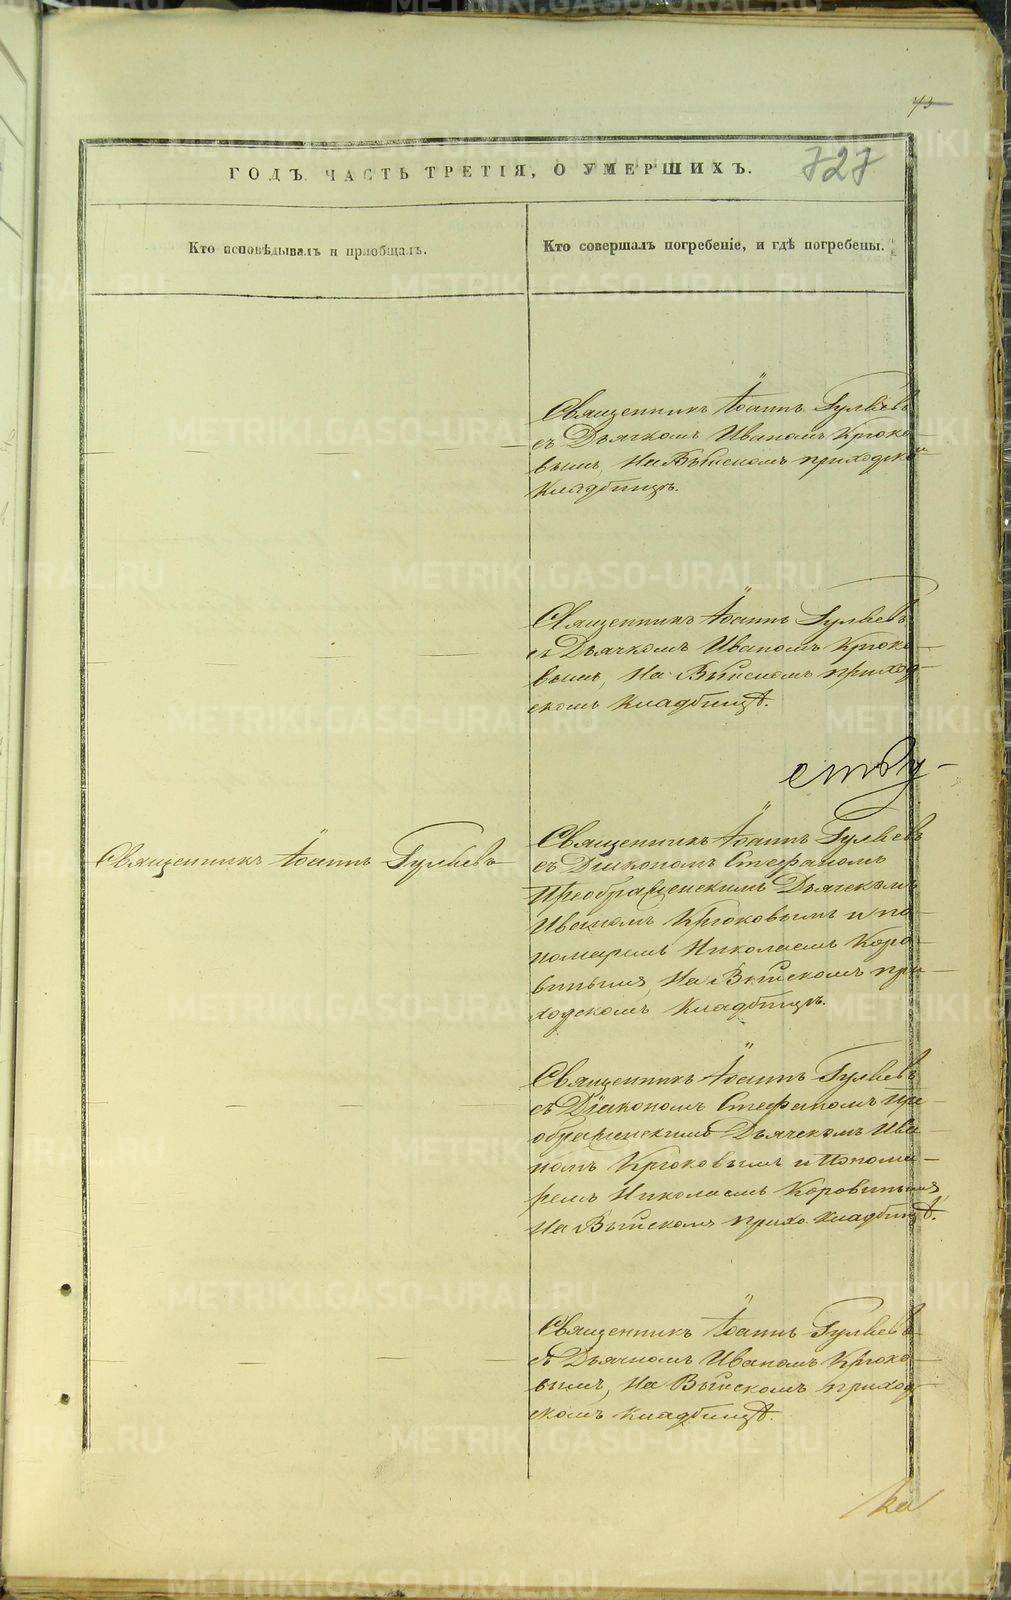 73
727
ГОДЪ ЧАСТЬ ТРЕТІЯ, О УМЕРШИХЪ.
Кто исповѣдывалъ и приобщалъ.
Кто совершалъ погребеніе, и гдѣ погребены.
Священникъ Іоаннъ Гуляевъ
съ Дьячкомъ Иваномъ Крюко-
вымъ, На Выйскомъ приходском
Кладбищѣ.
Священникъ Іоаннъ Гуляевъ
съ Дьячкомъ Иваномъ Крюко-
вымъ, На Выйскомъ приход-
скомъ Кладбищѣ.
Священникъ Іоаннъ Гуляевъ
Священникъ Іоаннъ Гуляевъ
съ Діакономъ Стефаномъ
Преображенскимъ Дьячекомъ
Иваномъ Крюковымъ и по-
номаремъ Николаемъ Коро-
винымъ, На Выйскомъ при-
ходскомъ Кладбищѣ.
Священникъ Іоаннъ Гуляевъ
съ Діакономъ Стефаномъ Пре-
ображенскимъ Дьячекомъ Ива-
номъ Крюковымъ и Понома-
ремъ Николаемъ Коровинымъ,
На Выйскомъ прихо. Кладбищѣ.
Священникъ Іоаннъ Гуляевъ
съ Дьячкомъ Иваномъ Крюко-
вымъ, На Выйскомъ приход-
скомъ Кладбищѣ.
METRIKI.GASO-URAL.RU